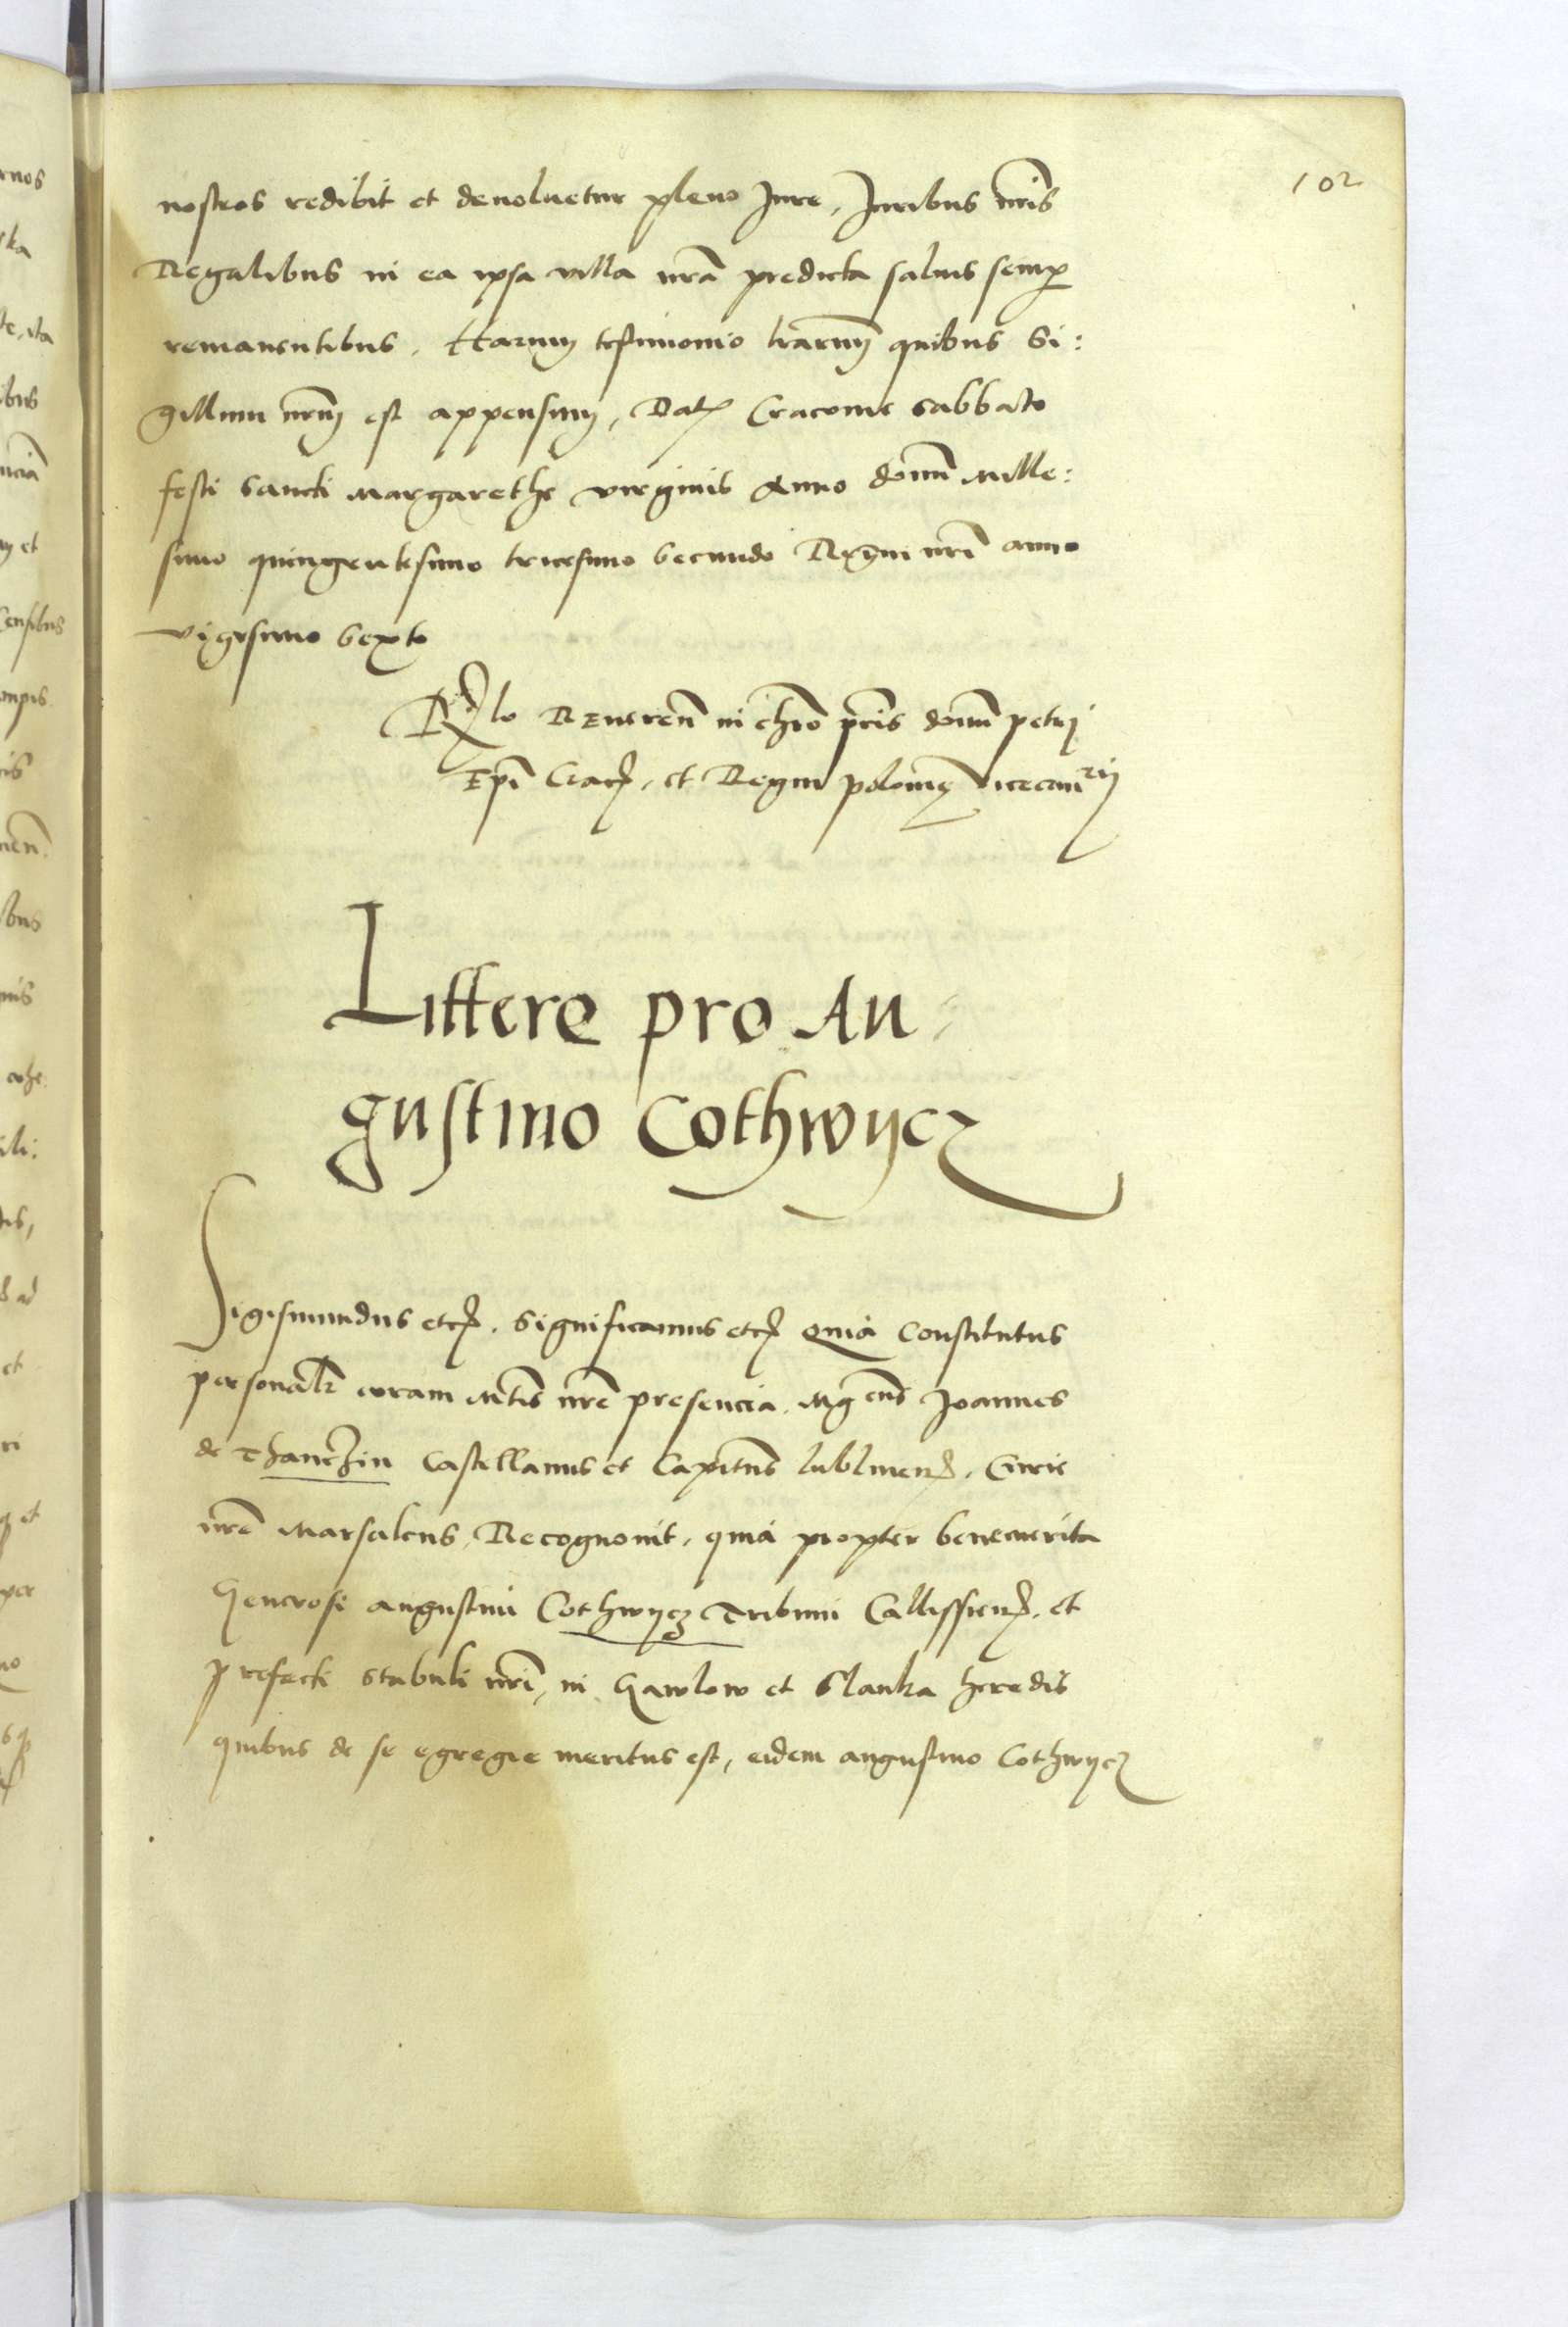 102
nostros redibit et devolvetur pleno Jure, Juribus nris
Regalibus in ea ipsa villa nra predicta salvis semp
remanentibus. Harum testimonio lrarum quibus Si:
gillum nrum est appensum, Dat Cracovie Sabbato
festi Sancti Margarethe virginis Anno domi Mille:
simo quingentesimo tricesimo Secundo Regni nri anno
vigesimo Sexto
Rlo Reveren in chro pris domi petri
Epi Crac. et Regni polonie vicecanrii
Littere pro Au
gustino Cothwycz
Sigismundus etc. Significamus etc Quia Constitutus
personalr coram Mtis nre presencia. Mgcus Joannes
de Thanczin Castellanus et Capitus lublinen. Curie
nre Marsalcus, Recognovit, quia propter benemerita
Generosi augustini Cothwycz Tribuni Callissien. et
prefecti stabuli nri, in Gawlow et Slanka heredis
quibus de se egregie meritus est, eidem augustino Cothwycz